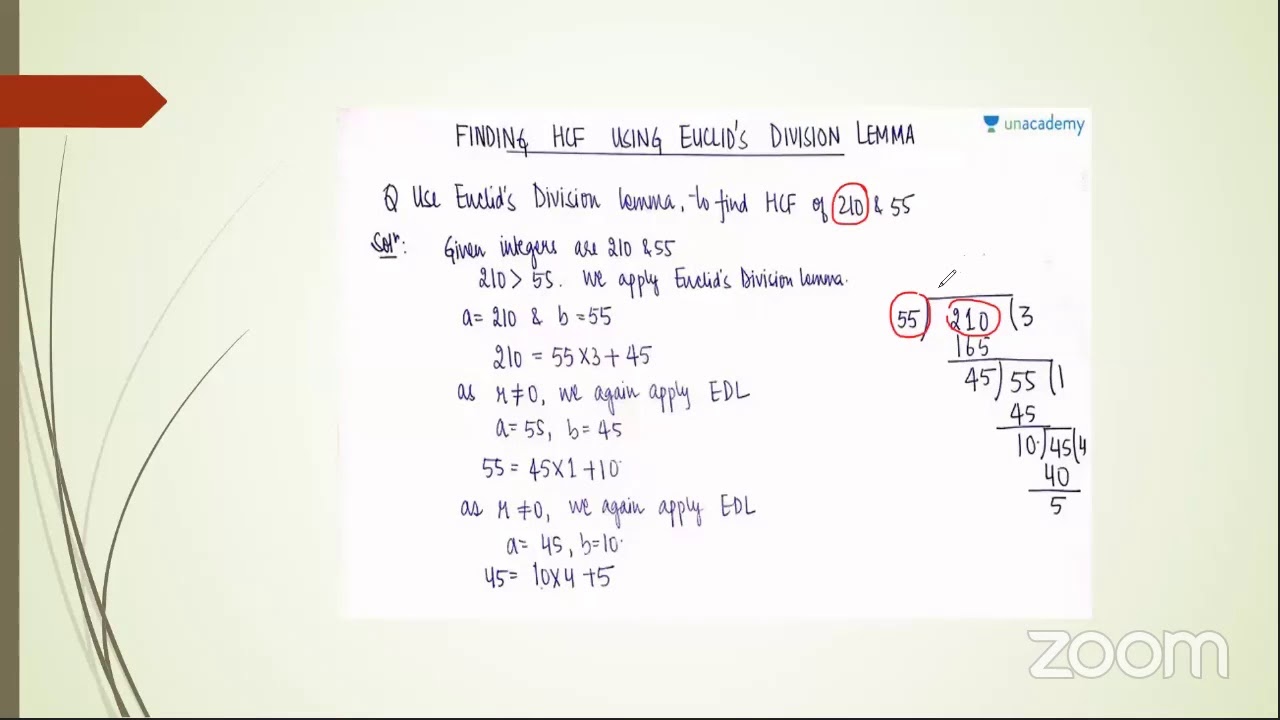 FINDING HCF USING EUCLID'S DIVISION LEMMA
unacademy
Q Use Euclid's Division lemma, to find HCF of 210 & 55
Solⁿ: Given integers are 210 & 55
210 > 55. We apply Euclid's Division lemma.
a= 210 & b =55
210 = 55×3+ 45
as r≠0, we again apply EDL
a= 55, b= 45
55 = 45×1 +10
as r≠0, we again apply EDL
a= 45, b=10
45= 10×4 +5
55) 210 (3
165
45) 55 (1
45
10) 45 (4
40
5
zoom